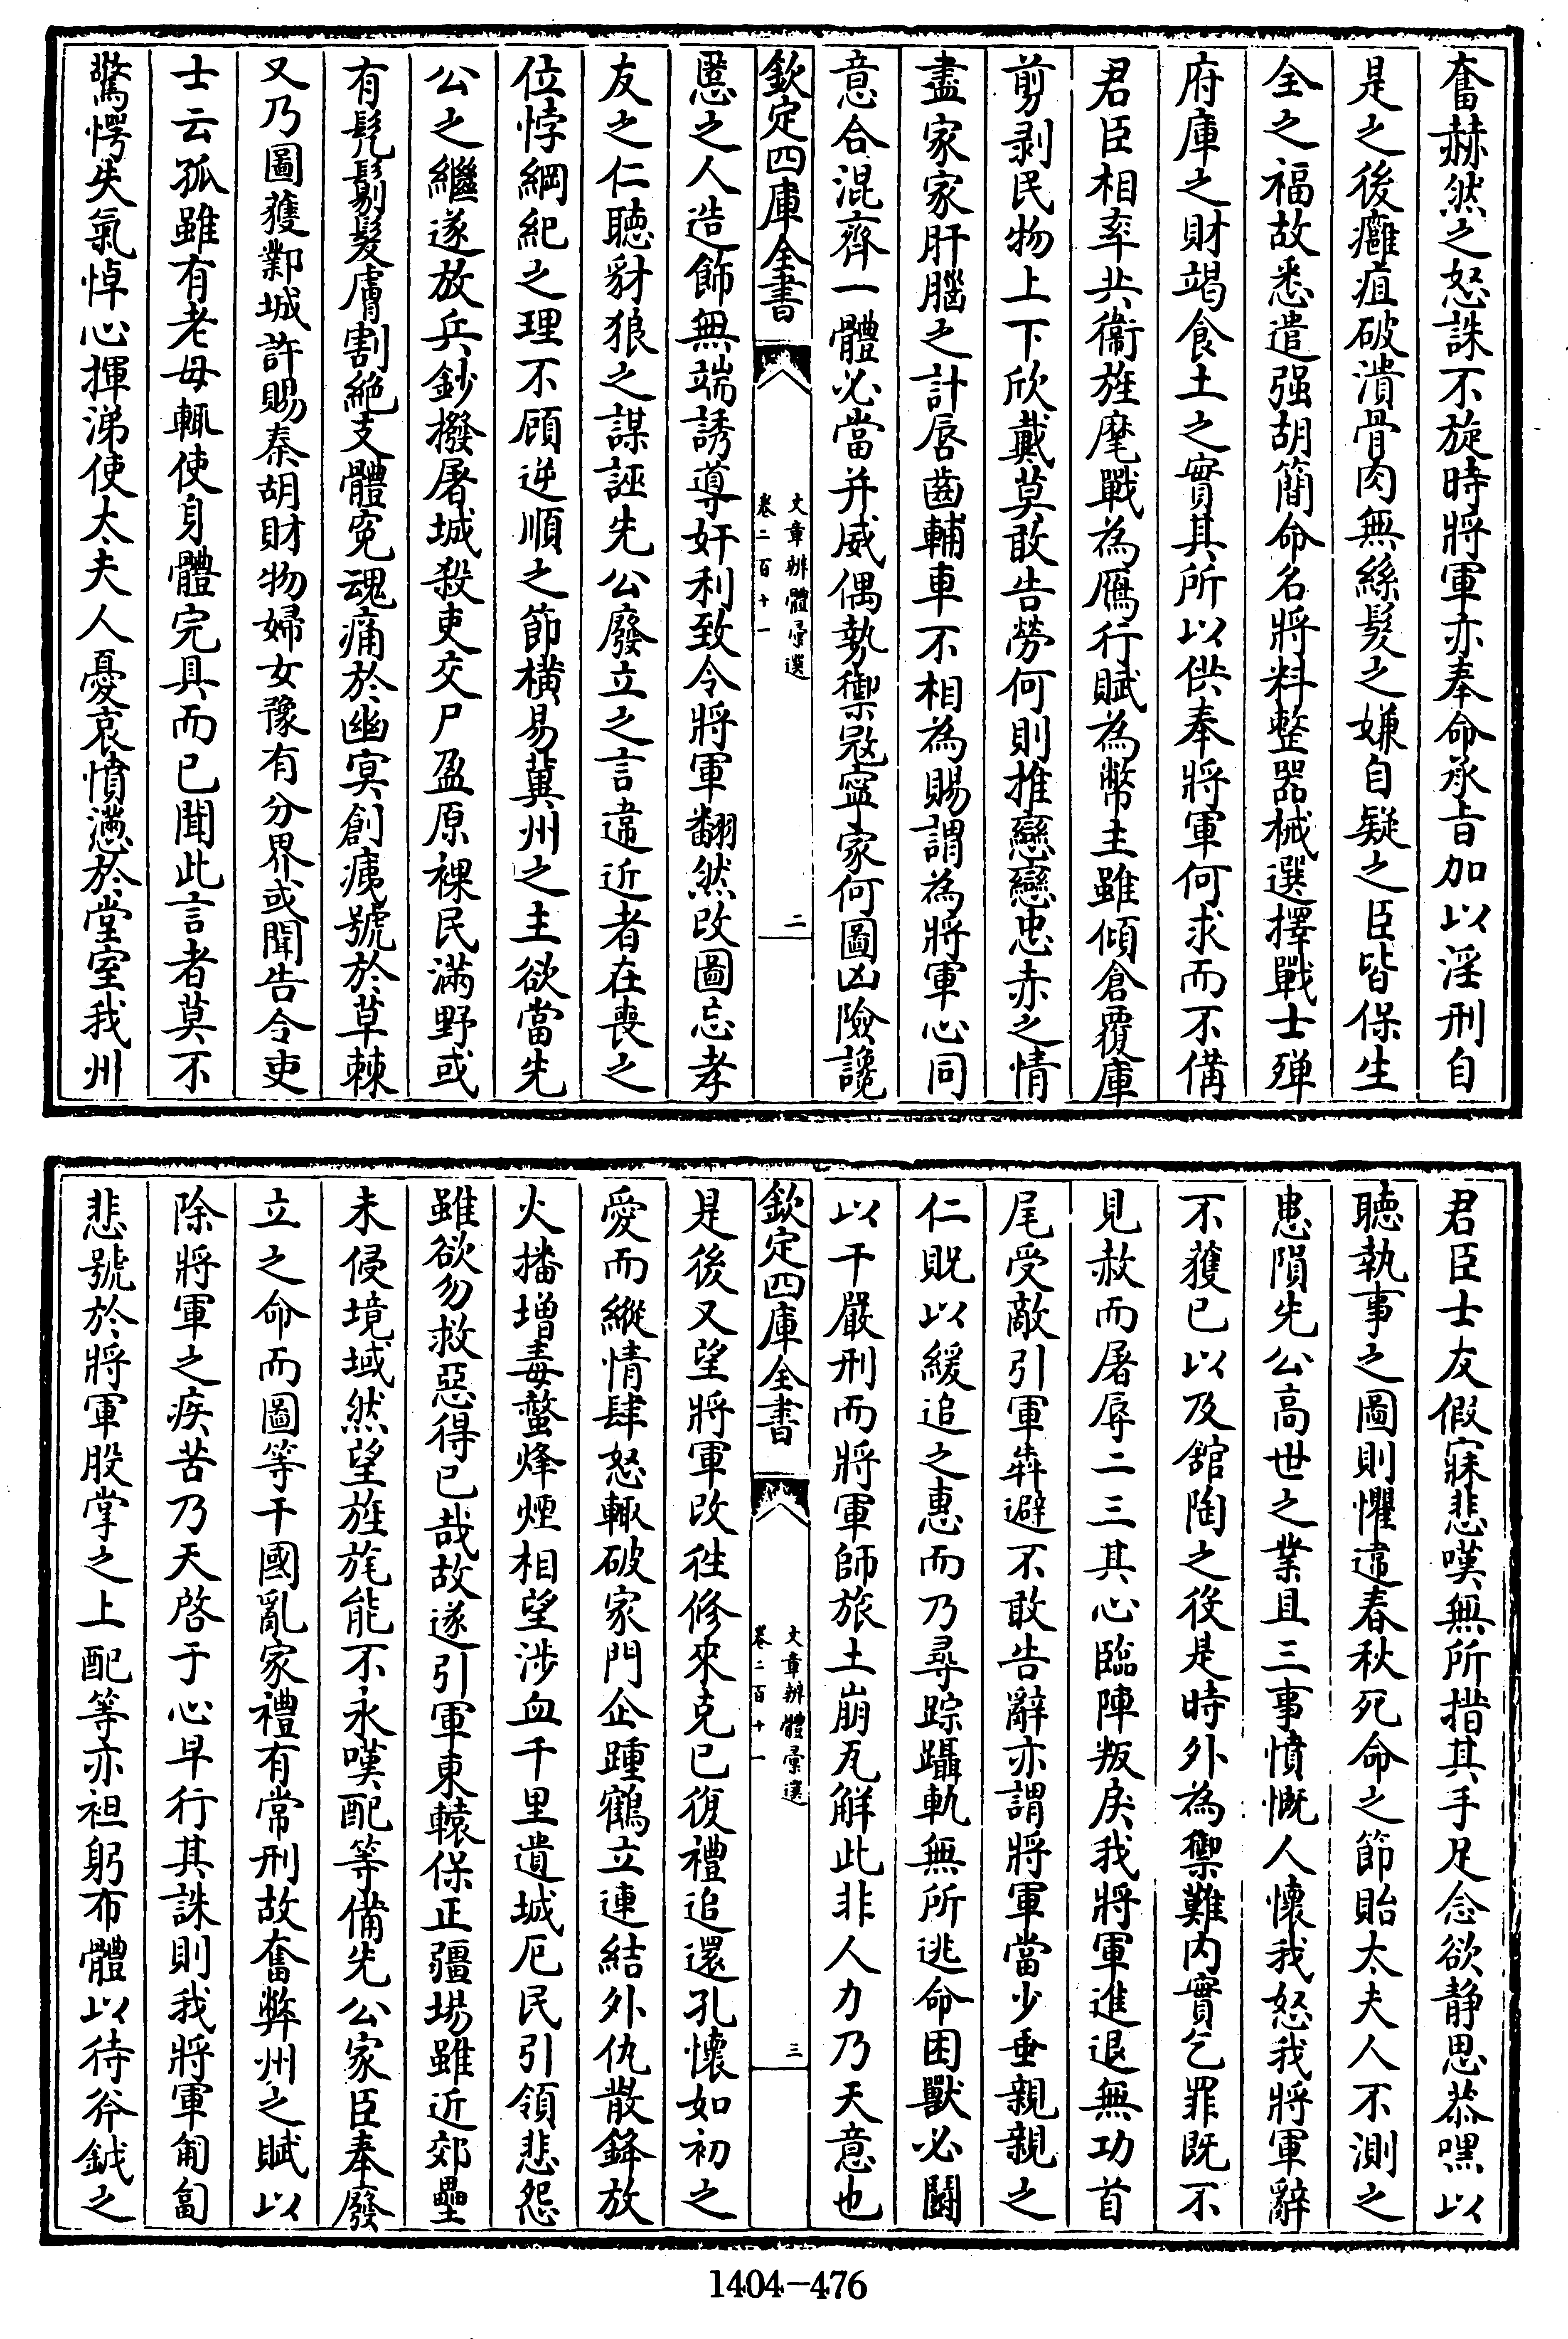 奮赫然之怒誅不旋時將軍亦奉命承旨加以淫刑自
是之後癰疽破潰骨肉無絲髮之嫌自疑之臣皆保生
全之福故悉遣强胡簡命名將料整器械選擇戰士殫
府庫之財竭食土之實其所以供奉將軍何求而不備
君臣相率共衛旌麾戰為鴈行賦為幣主雖傾倉覆庫
剪剥民物上下欣戴莫敢告勞何則推戀戀忠赤之情
盡家家肝腦之計唇齒輔車不相為賜謂為將軍心同
意合混齊一體必當并威偶勢禦冦寧家何圖凶險讒
欽定四庫全書
文章辨體彙選
卷二百十一
二
慝之人造飾無端誘導奸利致令將軍翻然改圖忘孝
友之仁聽豺狼之謀誣先公廢立之言違近者在喪之
位悖綱紀之理不顧逆順之節橫易冀州之主欲當先
公之繼遂放兵鈔撥屠城殺吏交尸盈原裸民滿野或
有髠鬎髮膚割絶支體寃魂痛於幽冥創痍號於草棘
又乃圖獲鄴城許賜秦胡財物婦女豫有分界或聞告令吏
士云孤雖有老母輒使身體完具而已聞此言者莫不
驚愕失氣悼心揮涕使太夫人憂哀憤懣於堂室我州
君臣士友假寐悲嘆無所措其手足念欲静思恭嘿以
聽執事之圖則懼違春秋死命之節貽太夫人不測之
患隕先公高世之業且三事憤慨人懷我怒我將軍辭
不獲已以及舘陶之役是時外為禦難内實乞罪既不
見赦而屠辱二三其心臨陣叛戾我將軍進退無功首
尾受敵引軍犇避不敢告辭亦謂將軍當少垂親親之
仁貺以緩追之惠而乃尋踪躡軌無所逃命困獸必鬭
以干嚴刑而將軍師旅土崩瓦解此非人力乃天意也
欽定四庫全書
文章辨體彙選
卷二百十一
三
是後又望將軍改徃修來克已復禮追還孔懷如初之
愛而縱情肆怒輒破家門企踵鶴立連結外仇散鋒放
火播增毒螫烽煙相望涉血千里遺城厄民引領悲怨
雖欲勿救惡得已哉故遂引軍東轅保正疆場雖近郊壘
未侵境域然望旌旄能不永嘆配等備先公家臣奉廢
立之命而圖等干國亂家禮有常刑故奮弊州之賦以
除將軍之疾苦乃天啓于心早行其誅則我將軍匍匐
悲號於將軍股掌之上配等亦袒躬布體以待斧鉞之
1404-476